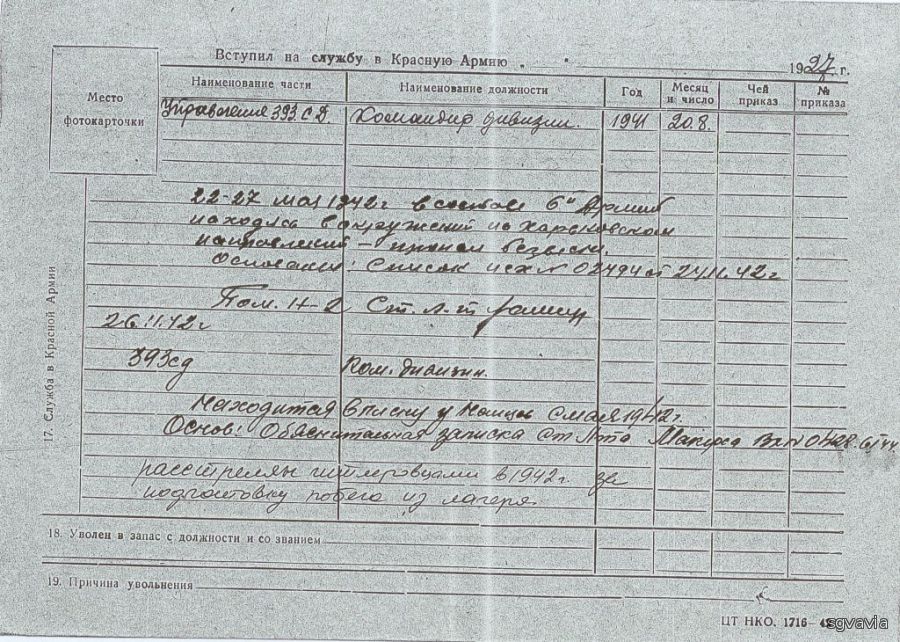 Вступил на службу в Красную Армию 1927 г.
Место фотокарточки
Наименование части Наименование должности Год Месяц и число Чей приказ № приказа
Управления 393 С.Д. Командир дивизии. 1941 20.8.
22-27 мая 1942 г в составе 6й Армии
находясь в окружений на Харьковском
направлений - пропал безвести.
Основание: Список исх N 02494 от 24.11.42 г
Пом. Н-2 Ст. л-т
26.11.42 г
393 сд Ком. дивизии.
Находится в плену у немцев с мая 1942 г.
Основ: Обяснительная записка Ст Л-та Вх N
расстрелян гитлеровцами в 1942 г. за
подготовку побега из лагеря.
17. Служба в Красной Армии
18. Уволен в запас с должности и со званием
19. Причина увольнения
ЦТ НКО. 1716—
sgvavia